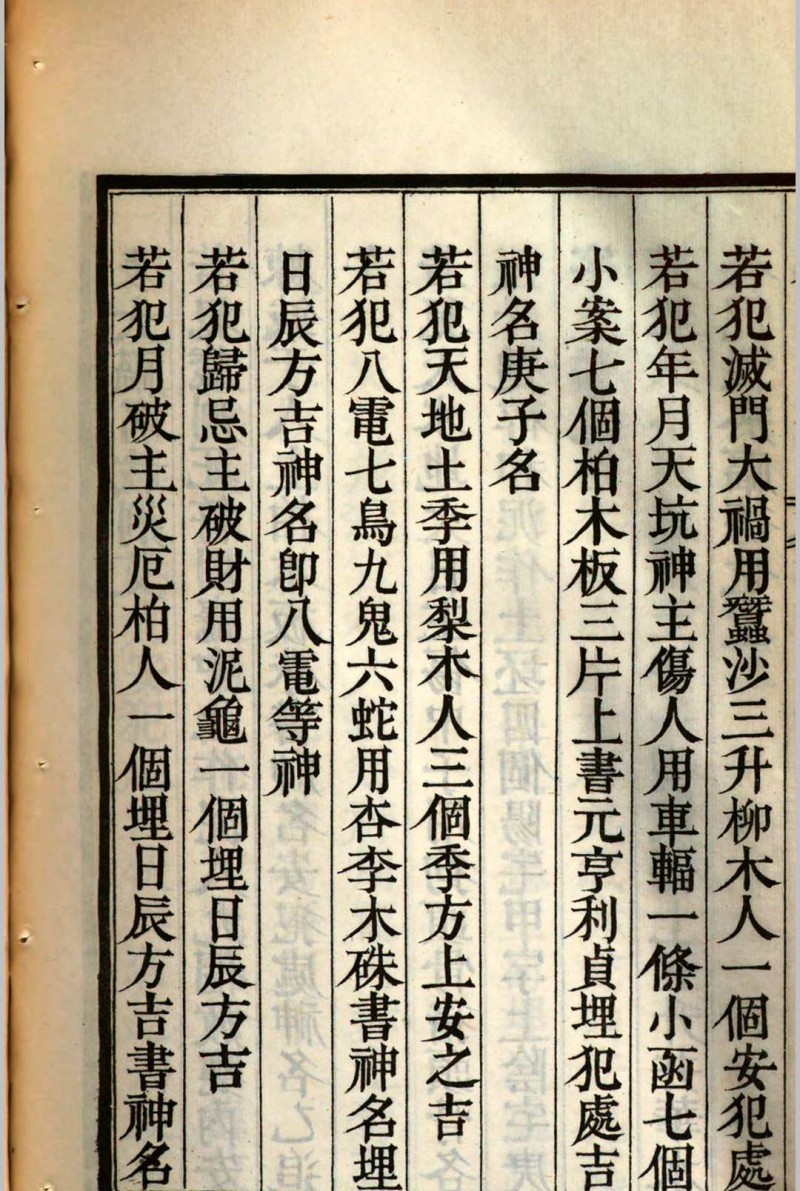 若犯滅門大禍用蠶沙三升柳木人一個安犯處
若犯年月天坑神主傷人用車輻一條小函七個
小案七個柏木板三片上書元亨利貞埋犯處吉
神名庚子名
若犯天地土季用梨木人三個季方上安之吉
若犯八電七鳥九鬼六蛇用杏李木硃書神名埋
日辰方吉神名卽八電等神
若犯歸忌主破財用泥龜一個埋日辰方吉
若犯月破主災厄柏人一個埋日辰方吉書神名